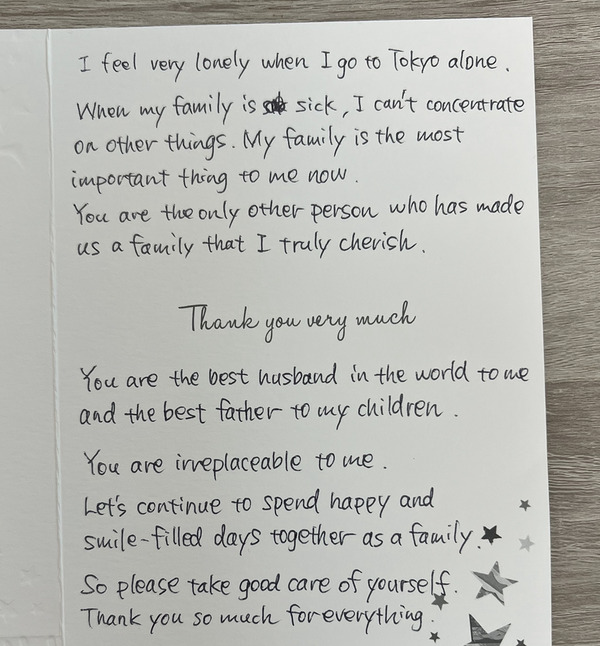 I feel very lonely when I go to Tokyo alone.
When my family is sick, I can't concentrate
on other things. My family is the most
important thing to me now.
You are the only other person who has made
us a family that I truly cherish.
Thank you very much
You are the best husband in the world to me
and the best father to my children.
You are irreplaceable to me.
Let's continue to spend happy and
smile-filled days together as a family.
So please take good care of yourself.
Thank you so much for everything.